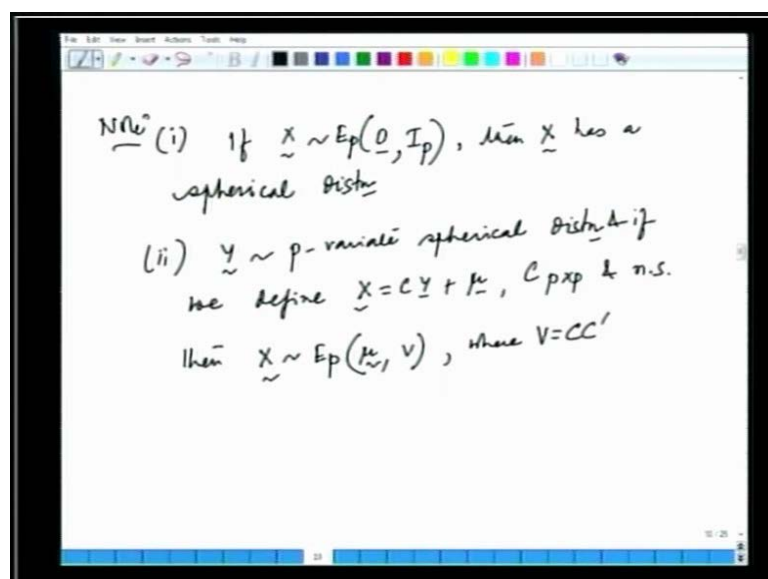 File Edit View Insert Actions Tools Help
Note (i) If X ~ Ep(0, Ip), then X has a
spherical Distn
(ii) Y ~ p-variate spherical Distn & if
we define X = CY + μ, C pxp & n.s.
then X ~ Ep(μ, V), where V=CC'